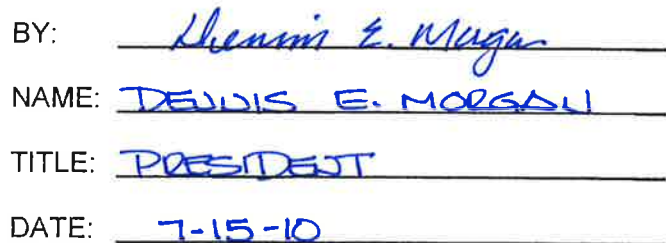 BY: Dennis E. Morgan
NAME: DENNIS E. MORGAN
TITLE: PRESIDENT
DATE: 7-15-10